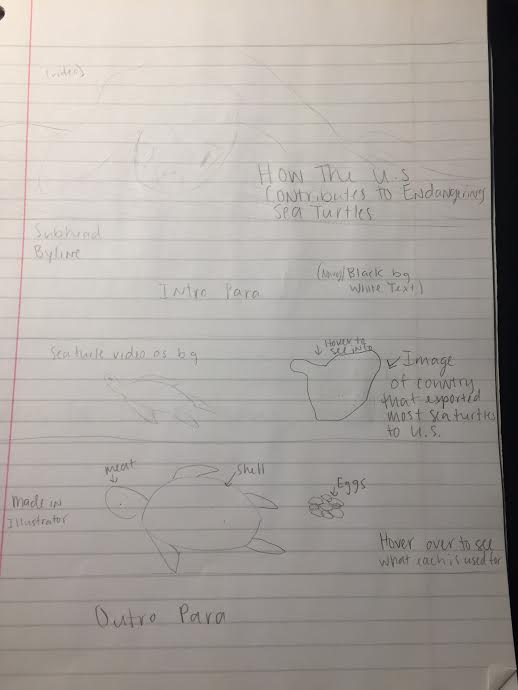 (video)
How The U.S
Contributes To Endangering
Sea Turtles
Subhead
Byline
Intro Para
(Navy/Black bg
White Text)
Sea turtle video as bg
Hover to
see info
Image
of country
that exported
most sea turtles
to U.S.
meat
shell
Eggs
Made in
Illustrator
Hover over to see
what each is used for
Outro Para